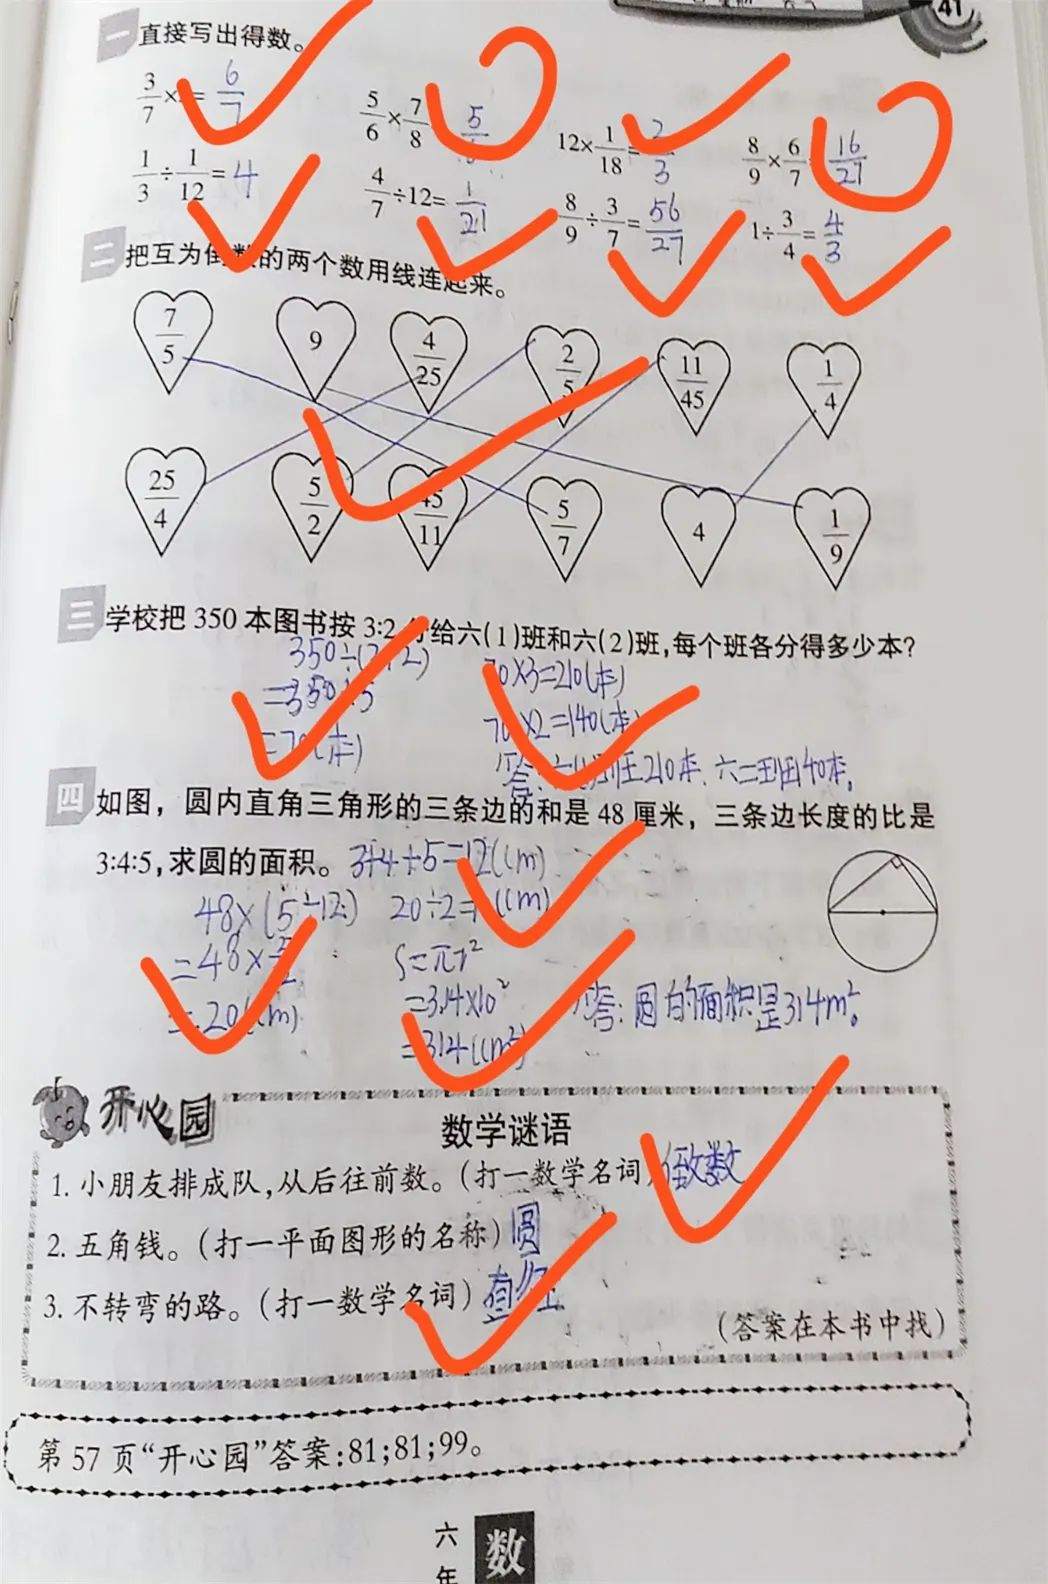 41
一 直接写出得数。
3/7× = 6/7
5/6×7/8 5/
12×1/18= 2/3
8/9×6/7 16/21
1/3÷1/12= 4
4/7÷12= 1/21
8/9÷3/7= 56/27
1÷3/4= 4/3
二 把互为倒数的两个数用线连起来。
7/5 9 4/25 2/5 11/45 1/4
25/4 5/2 45/11 5/7 4 1/9
三 学校把 350 本图书按 3:2 分给六(1)班和六(2)班,每个班各分得多少本?
350÷(3+2) 70×3=210(本)
=350÷5 70×2=140(本)
=70(本)
答: 210本. 六二班140本.
四 如图，圆内直角三角形的三条边的和是 48 厘米，三条边长度的比是
3:4:5,求圆的面积。 3+4+5=12(cm)
48×(5÷12) 20÷2= (cm)
=48× S=πr²
=20(cm) =3.14×10² 答:圆的面积是314m².
=314(cm²)
开心园
数学谜语
1. 小朋友排成队,从后往前数。(打一数学名词) 倒数
2. 五角钱。(打一平面图形的名称) 圆
3. 不转弯的路。(打一数学名词) 直径
(答案在本书中找)
第 57 页“开心园”答案:81;81;99。
六 数
年